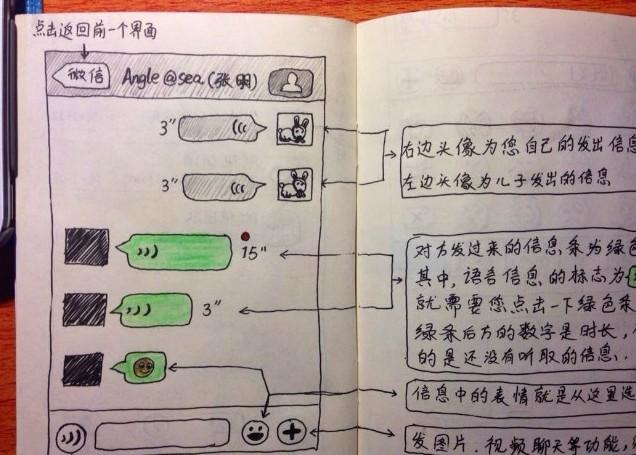 点击返回前一个界面
微信 Angle@sea(张明)
3"
3"
15"
3"
右边头像为您自己的发出信息
左边头像为儿子发出的信息
对方发过来的信息条为绿色
其中,语言信息的标志为
就需要您点击一下绿色条
绿条后方的数字是时长,
的是还没有听取的信息.
信息中的表情就是从这里选
发图片.视频聊天等功能,